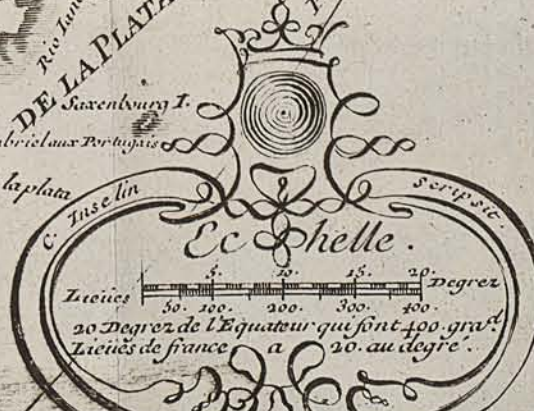 Rio Jan
DE LA PLATA
Saxenbourg I.
abriel aux Portugais
la plata
C. Inselin
scripsit.
Echelle.
5. 10. 15. 20.
Lieües
Degrez
50. 100. 200. 300. 400.
20 Degrez de l'Equateur qui font 400. grad.
Lieües de france a 20. au degré.